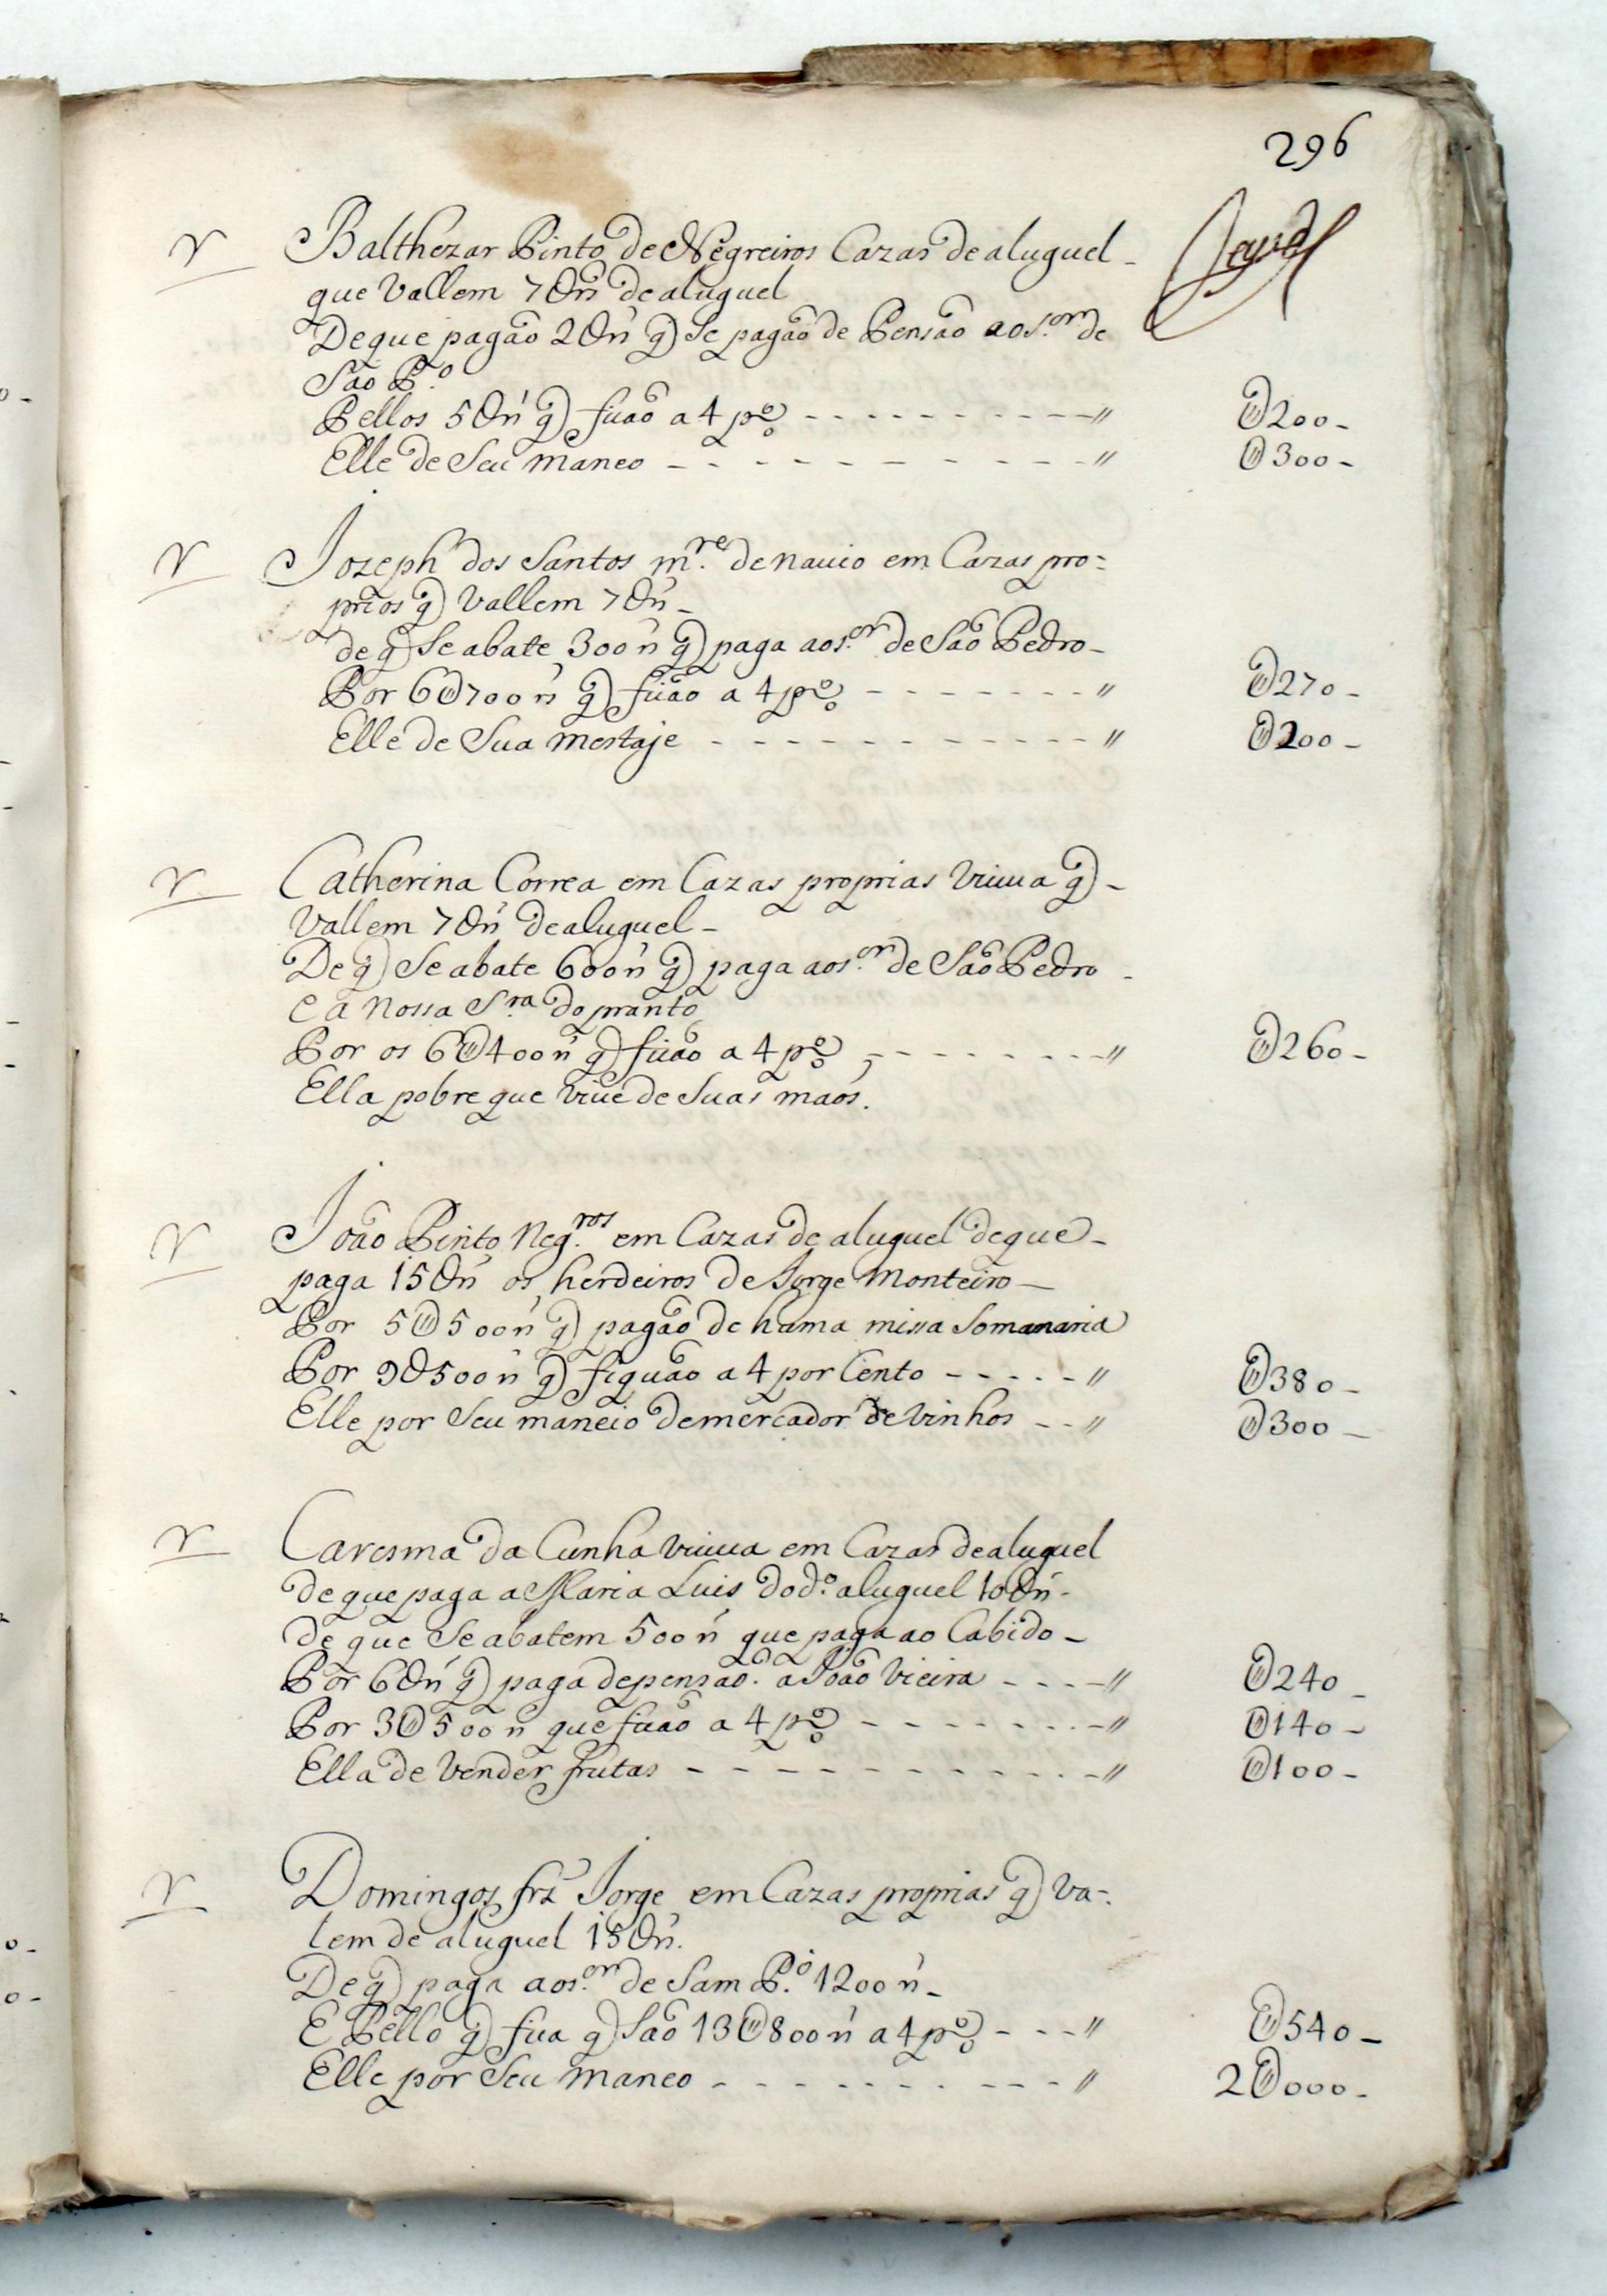 296
V Balthezar Pinto de Negreiros Cazas de aluguel -
que Vallem 7U rs de aluguel
De que pagão 2U rs q̃ se pagão de Pensão aos.ores de
São P.º
Pellos 5U rs q̃ ficão a 4 pº/º - - - - - - - - - - " U200 -
Elle de Seu maneo - - - - - - - - - - " U300 -
V Jozeph dos Santos m.re de nauio em Cazas pro=
prios q̃ Vallem 7U rs -
de q̃ Se abate 300 rs q̃ paga aos.or de São Pedro -
Por 6U700 rs q̃ ficão a 4 pº/º - - - - - - - " U270 -
Elle de Sua mestaje - - - - - - - - - - - - " U200 -
V Catherina Correa em Cazas proprias Viuua q̃ -
Vallem 7U rs de aluguel -
De q̃ Se abate 600 rs q̃ paga aos.or de São Pedro -
e a Nossa S.ra do pranto
Por os 6U400 rs q̃ ficão a 4 pº/º - - - - - - - - " U260 -
Ella pobre que viue de Suas maos.
V João Pinto Neg.ros em Cazas de aluguel de que -
paga 15U rs os herdeiros de Jorge Monteiro -
Por 5U500 rs q̃ pagão de huma missa Somanaria
Por 9U500 rs q̃ fiquão a 4 por Cento - - - - - " U380 -
Elle por Seu maneio de mercador de Vinhos - - " U300 -
V Caresma da Cunha Viuua em Cazas de aluguel
de que paga a Maria Luis do d.º aluguel 10U rs -
de que Se abatem 500 rs que paga ao Cabido -
Por 6U rs q̃ paga de pensão a João Vieira - - - - " U240 -
Por 3U500 rs que ficão a 4 pº/º - - - - - - - - " U140 -
Ella de Vender frutas - - - - - - - - - - - " U100 -
V Domingos frz Jorge em Cazas proprias q̃ Va=
lem de aluguel 15U rs.
De q̃ paga aos.or de Sam P.º 1200 rs -
E Pello q̃ fica q̃ São 13U800 rs a 4 pº/º - - - " U540 -
Elle por Seu maneo - - - - - - - - - - " 2U000 -